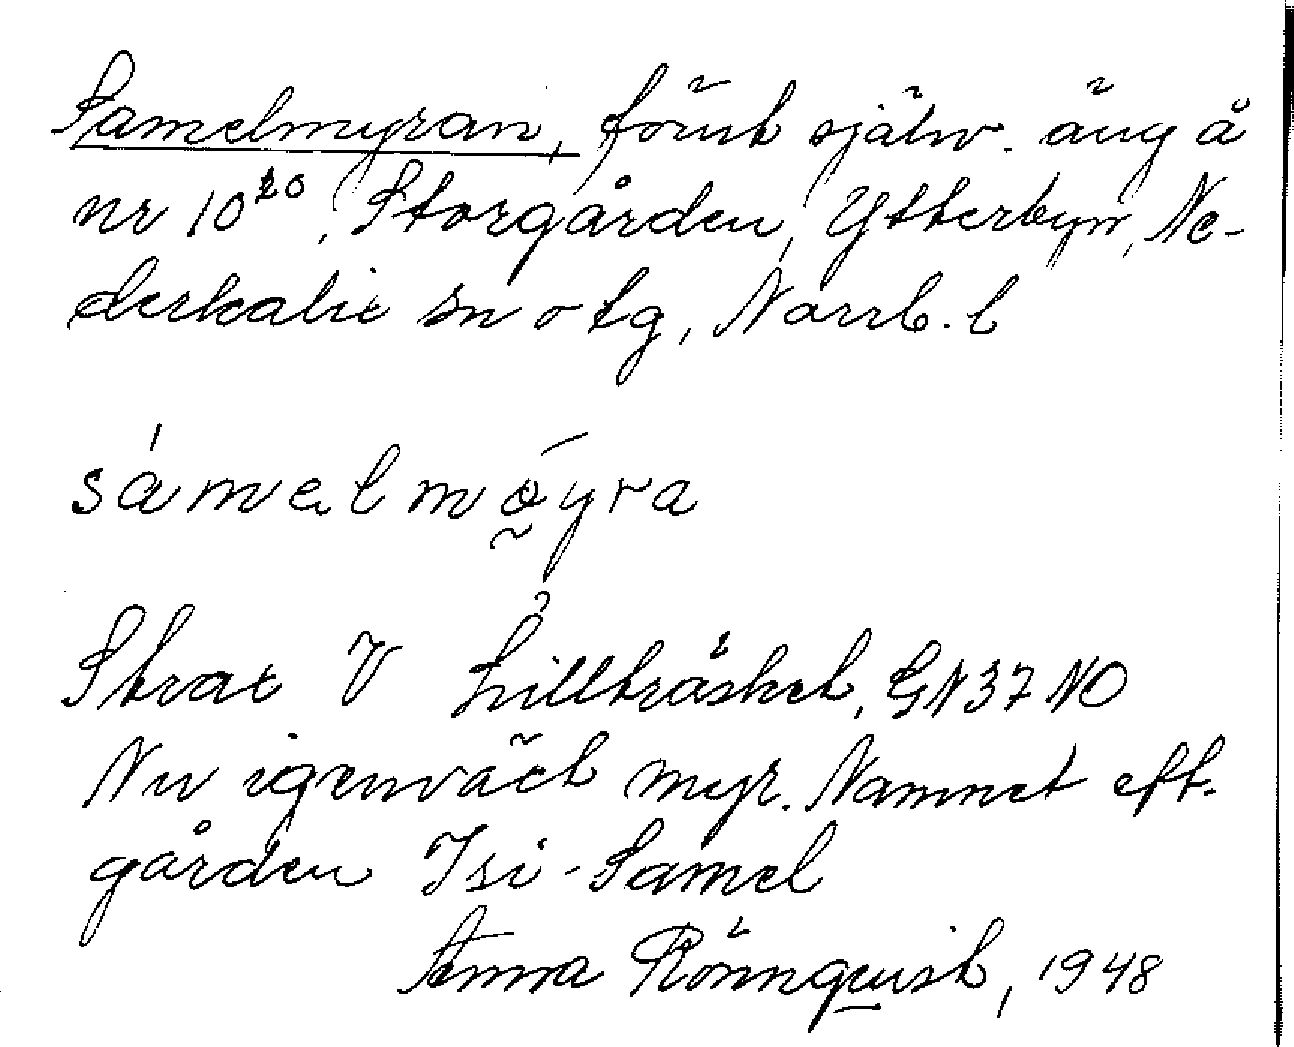 Samelmyran, förut självr. äng å
nr 10²⁰, Storgården, Ytterbyn, Ne-
derkalix sn o tg, Norrb. l
sámelmøyra
Strax V Lillträsket, GN37NO
Nu igenväxt myr. Namnet eft.
gården Isi-Samel
Anna Rönnquist, 1948